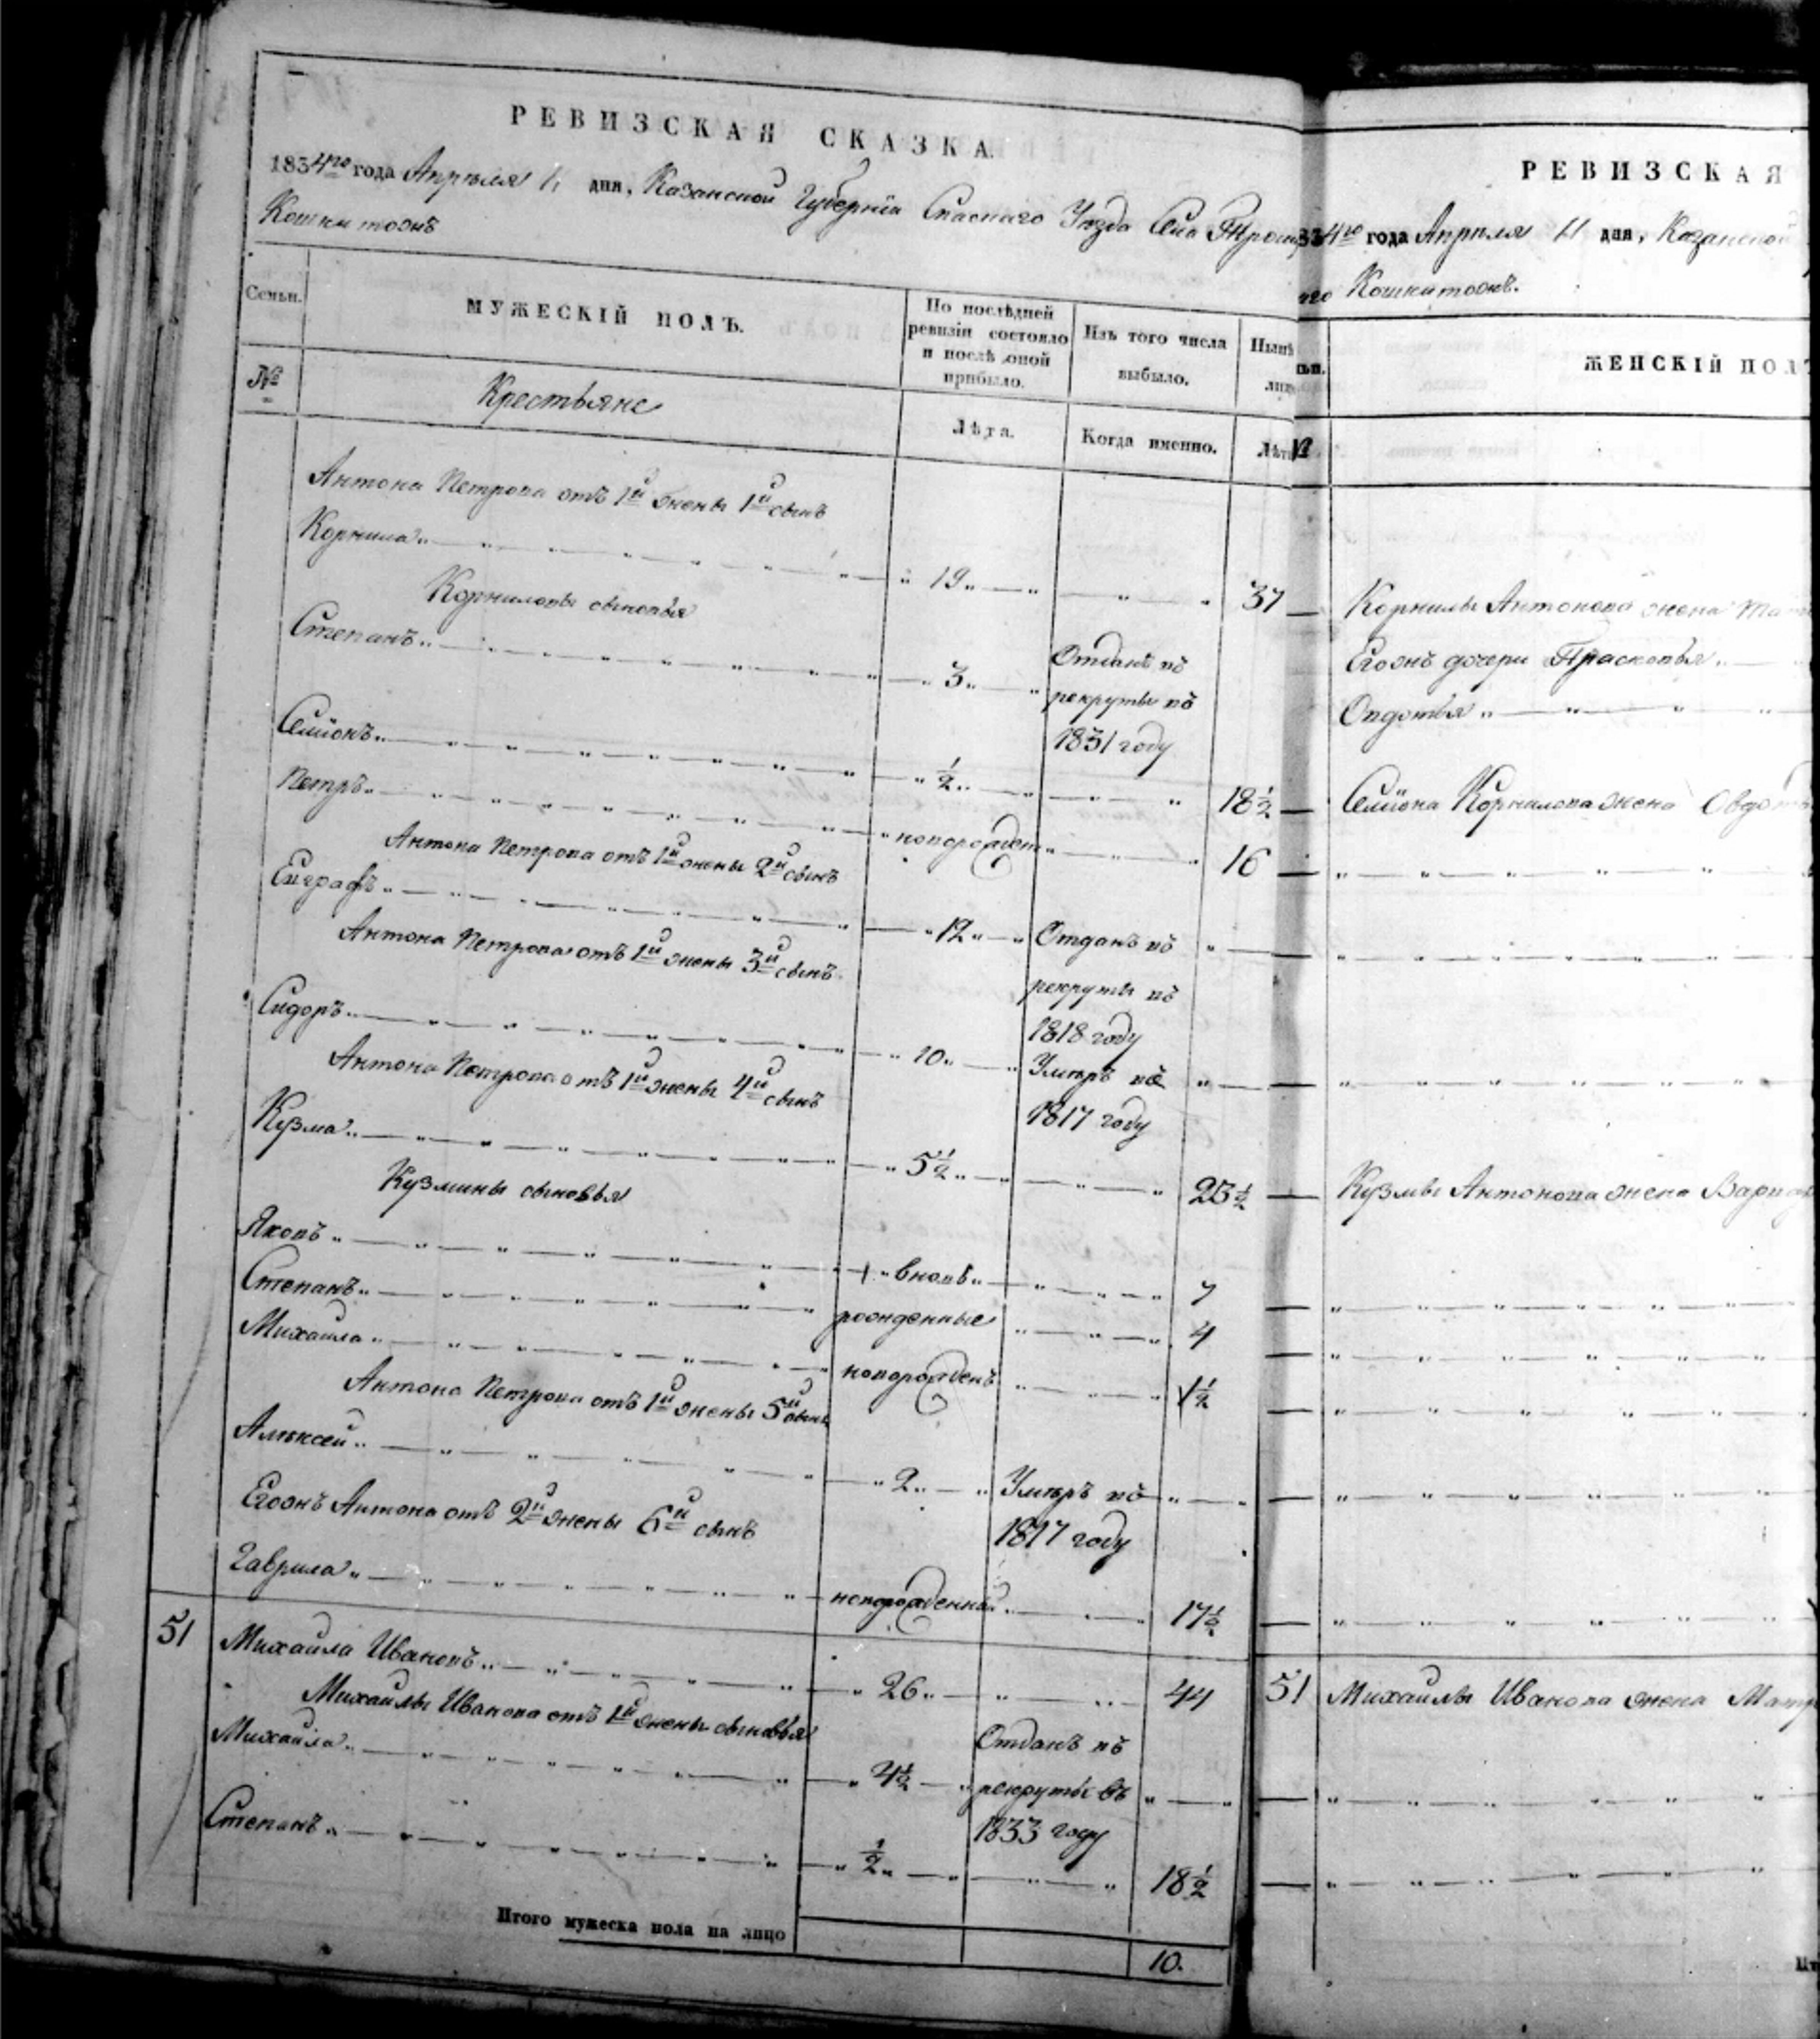 РЕВИЗСКАЯ СКАЗКА.
1834го года Апреля 11 дня, Казанской Губернiи Спаскаго Уезда Села Троиц
Кошки тожъ
Семьи.
МУЖЕСКIЙ ПОЛЪ.
По послѣдней ревизiи состояло и послѣ оной прибыло.
Изъ того числа выбыло.
Нынѣ
№
Крестьяне
Лѣта.
Когда именно.
Лѣта
Антона Петрова отъ 1й жены 1й сынъ
Корнила 19 37
Корниловы сыновья
Степанъ 3 Отданъ въ
рекруты въ
1831 году
Семионъ ½ 18½
Петръ новорожден 16
Антона Петрова отъ 1й жены 2й сынъ
Евграфъ 12 Отданъ въ
рекруты въ
1818 году
Антона Петрова отъ 1й жены 3й сынъ
Сидоръ 10 Умѣръ въ
1817 году
Антона Петрова отъ 1й жены 4й сынъ
Кузма 5½ 23½
Кузмины сыновья
Яковъ вновь 7
Степанъ рожденные 4
Михаила новорожденъ 1½
Антона Петрова отъ 1й жены 5й сынъ
Алѣксей 2 Умѣръ въ
1817 году
Егожъ Антона отъ 2й жены 6й сынъ
Гаврила новорожденный 17½
51 Михаила Ивановъ 26 44
Михаилы Иванова отъ 1й жены сыновья
Михаила 4½ Отданъ въ
рекруты въ
1833 году
Степанъ ½ 18½
Итого мужеска пола на лицо 10.
РЕВИЗСКАЯ
334го года Апреля 11 дня, Казанской
го Кошки тожъ.
ьи.
ЖЕНСКIЙ ПОЛ
№
Корнилы Антонова жена
Егожъ дочери Прасковья
Овдотья
Семиона Корнилова жена Овдоть
Кузмы Антонова жена
51 Михаилы Иванова жена Матр
Ит